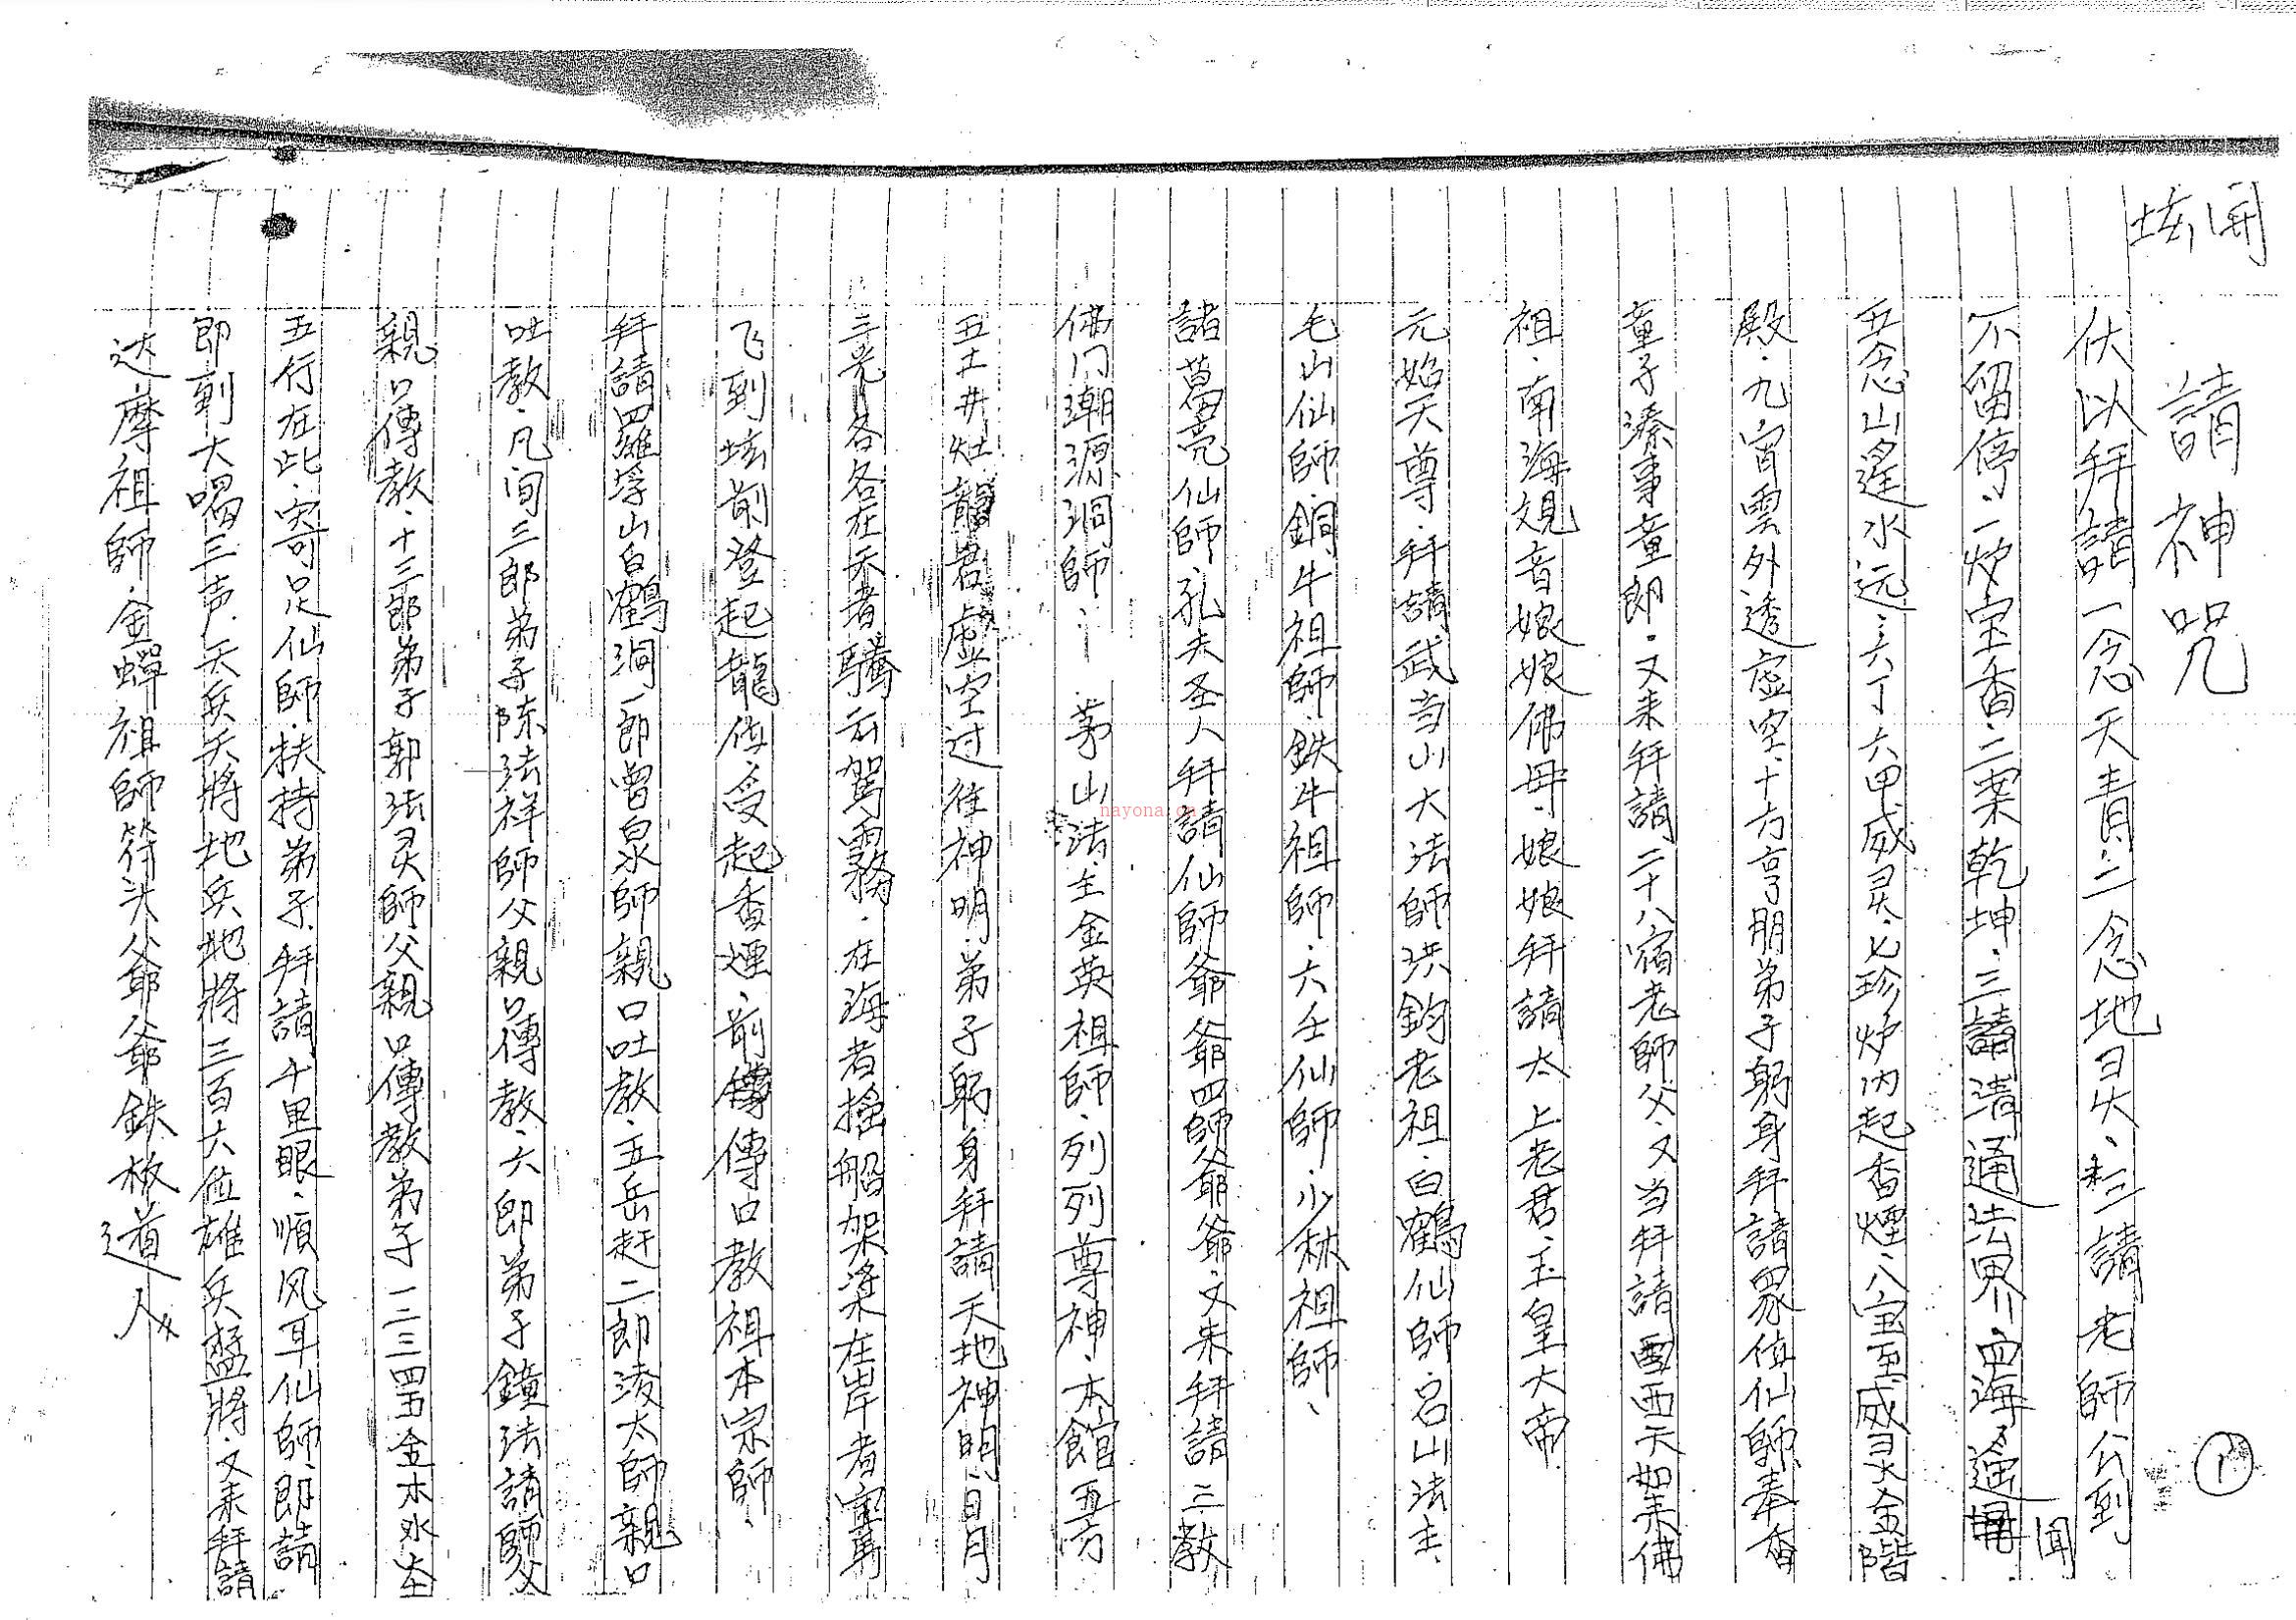 開坛
請神咒
①
伏以拜請一念天責、二念地灵、三請老師公到
不留停、一炉宝香、二案乾坤、三請清通法界、四海通聞
五念山遥水远、六丁六甲威灵、七珍炉内起香煙、八宝至威灵金階
殿、九宵雲外透虚空、十方亨朋弟子躬身拜請眾位仙師、奉香
童子溱事童郎、又来拜請二十八宿老師父、又当拜請西天如来佛
祖、南海观音娘娘佛母、娘娘拜請太上老君、玉皇大帝
元始天尊、拜請武当山大法師洪鈞老祖、白鶴仙師、名山法主、
毛山仙師、銅牛祖師、鉄牛祖師、六壬仙師、少林祖師、
諸葛亮仙師、孔夫圣人拜請仙師爺爺四師父爺爺、文来拜請三教
佛门潮源洞師、茅山法主金英祖師、列列尊神、本館五方
五土井灶龍君虚空过往神明、弟子躬身拜請天地神明、日月
三光各各在天者騰云驾霧、在海者搶船架桨、在岸者
飞到坛前登起龍位、受起香煙、前傳傳口教祖本宗師、
拜請羅浮山白鶴洞一郎曾泉師親口吐教、五岳赶二郎淩太師親口
吐教、凡间三郎弟子陈法祥師父親口傳教、六郎弟子鐘法請師父
親口傳教、十三郎弟子郭法灵師父親口傳教弟子一二三四五金木水土
五行在此、寄足仙師、扶持弟子、拜請千里眼、順风耳仙師、即請
即到大喝三声、天兵天將地兵地將三百大位雄兵猛將、又来拜請
达摩祖師、金蟬祖師符头父爺爺鉄板道人
nayona.cn